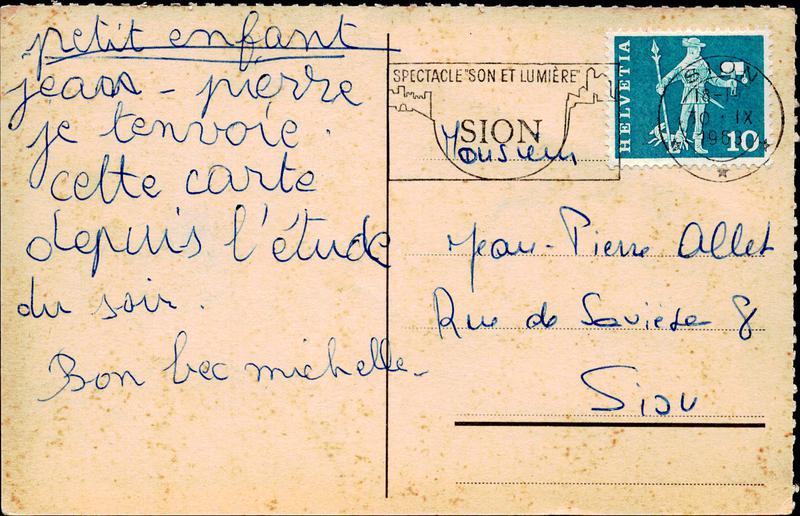 petit enfant
jean - pierre
je t'envoie.
cette carte
depuis l'étude
du soir.
Bon bec michelle.
SPECTACLE "SON ET LUMIÈRE"
SION
HELVETIA
10
SION
10 · IX
Monsieur
Jean-Pierre Allet
Rue de Savièse 8
Sion